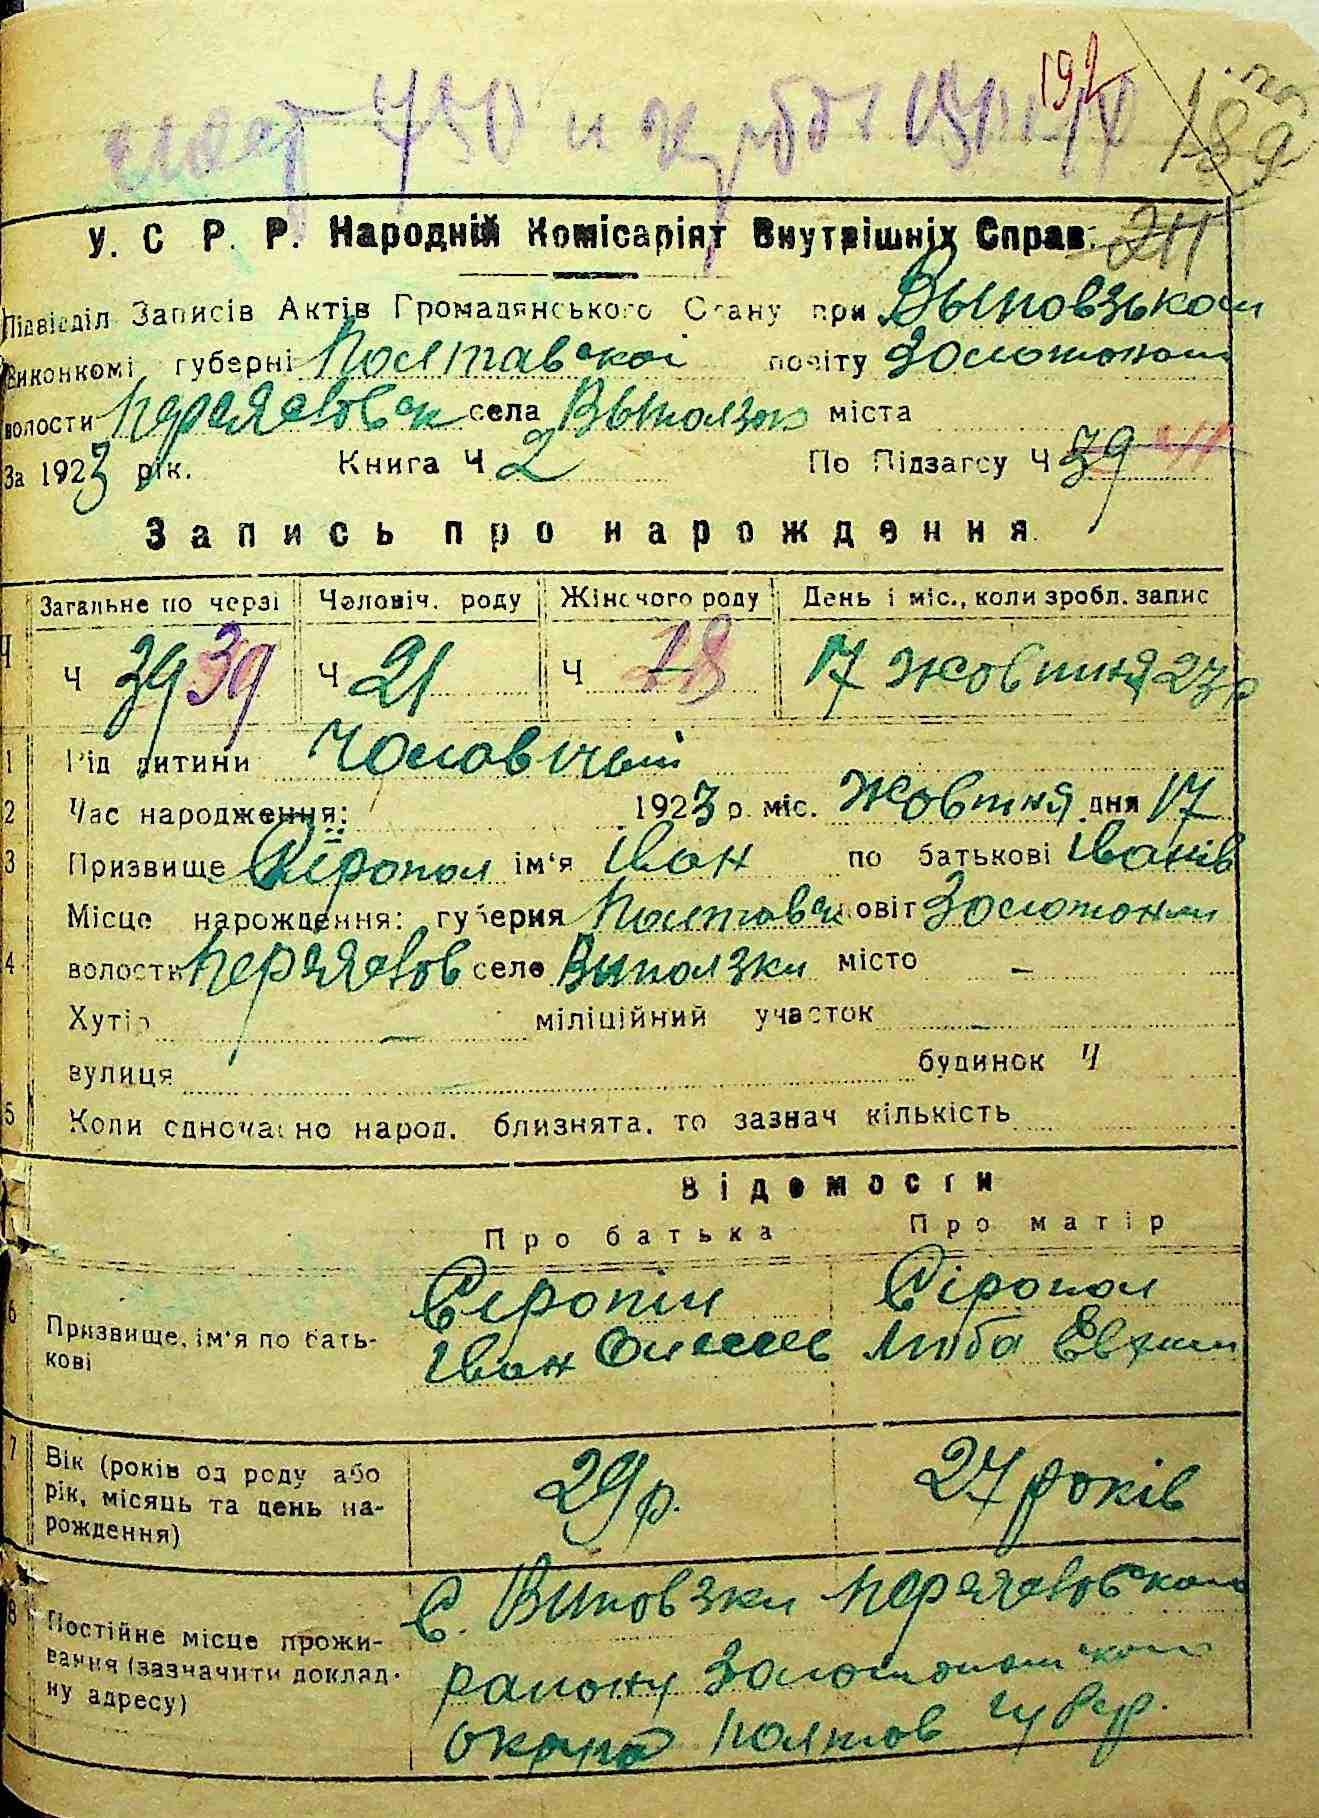 192
189
211
У. С. Р. Р. Народній Комісаріят Внутрішніх Справ.
Підвідділ Записів Актів Громадянського Стану при Выповзьком
Виконкомі губерні Полтавскоі повіту Золотонош
волости села Выползк міста
За 1923 рік. Книга Ч 2 По Підзагсу Ч 39
Запись про народження.
Загальне по черзі Чоловіч. роду Жіночого роду День і міс., коли зробл. запис
Ч Ч 39 39 Ч 21 Ч 18 17 жовтня 23 р
1 Рід дитини Чоловічий
2 Час народження: 1923 р. міс. Жовтня дня 17
3 Призвище Сіропол ім'я Іван по батькові Іванів
Місце нарождення: губерня Полтавск повіт Золотонош
4 волость село Виползки місто –
Хутір – міліційний участок –
вулиця будинок Ч
5 Коли одночасно народ. близнята, то зазнач кількість
Відомости
Про батька Про матір
6 Призвище, ім'я по бать-
кові
Сіропол
Іван Люба
7 Вік (років од роду або
рік, місяць та день на-
рождення)
29 р. 27 років
8 Постійне місце прожи-
вання (зазначити доклад-
ну адресу)
С. Виповзки
району
округа Полтав губер.